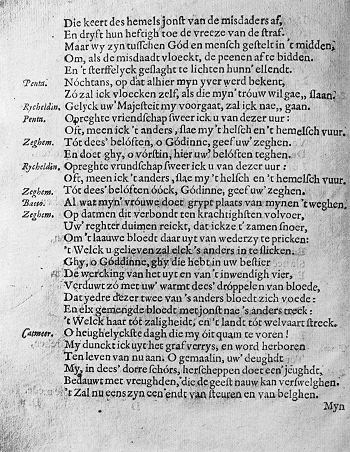 Die keert des hemels jonst van de misdaders af,
En dryft hun heftigh toe de vreeze van de straf.
Maar wy zyn tusschen Gód en mensch gestelt in 't midden,
Om, als de misdaadt vloeckt, de peenen af te bidden.
En 't sterffelyck geslaght te lichten hunn' ellendt.
Penta. Nóchtans, op dat alhier myn yver werd bekent,
Zó zal ick vloecken zelf, als die myn' tróuw wil gae,, slaan.
Rycheldin. Gelyck uw' Majesteit my voorgaat, zal ick nae,, gaan.
Penta. Opreghte vriendschap sweer ick u van dezer uur:
Oft, meen ick 't anders, slae my 't helsch en 't hemelsch vuur.
Zeghem. Tót dees' belóften, ó Gódinne, geef uw' zeghen.
En doet ghy, o vórstin, hier uw' belóften teghen.
Rycheldin. Opreghte vrundschap sweer ick u van dezer uur:
Oft, meen ick 't anders, slae my 't helsch en 't hemelsch vuur.
Zeghem. Tót dees' belóften óóck, Gódinne, geef uw' zeghen.
Baeto. Al wat myn' vróuwe doet grypt plaats van mynen 't weghen.
Zeghem. Op datmen dit verbondt ten krachtighsten volvoer,
Uw' reghter duimen reickt, dat ickze t' zamen snoer,
Om 't laauwe bloedt daar uyt van wederzy te pricken:
't Welk u gelieven zal elck 's anders in te slicken.
Ghy, o Góddinne, ghy die hebt in uw bestier
De wercking van het uyt en van 't inwendigh vier,
Verduwt zó met uw' warmt dees' dróppelen van bloede,
Dat yedre dezer twee van 's anders bloedt zich voede:
En elx gemengde bloedt met jonst nae 's anders treck:
't Welck haar tót zaligheidt, en 't landt tót welvaart streck.
Catmeer. O heughelyckste dagh die my óit quam te voren!
My dunckt ick uyt het graf verrys, en word herboren
Ten leven van nu aan. O gemaalin, uw' deughdt
My, in dees' dorre schórs, herscheppen doet een' jeughdt,
Bedauwt met vreughden, die de geest nauw kan verswelghen.
't Zal nu eens zyn een' endt van steuren en van belghen.
Myn